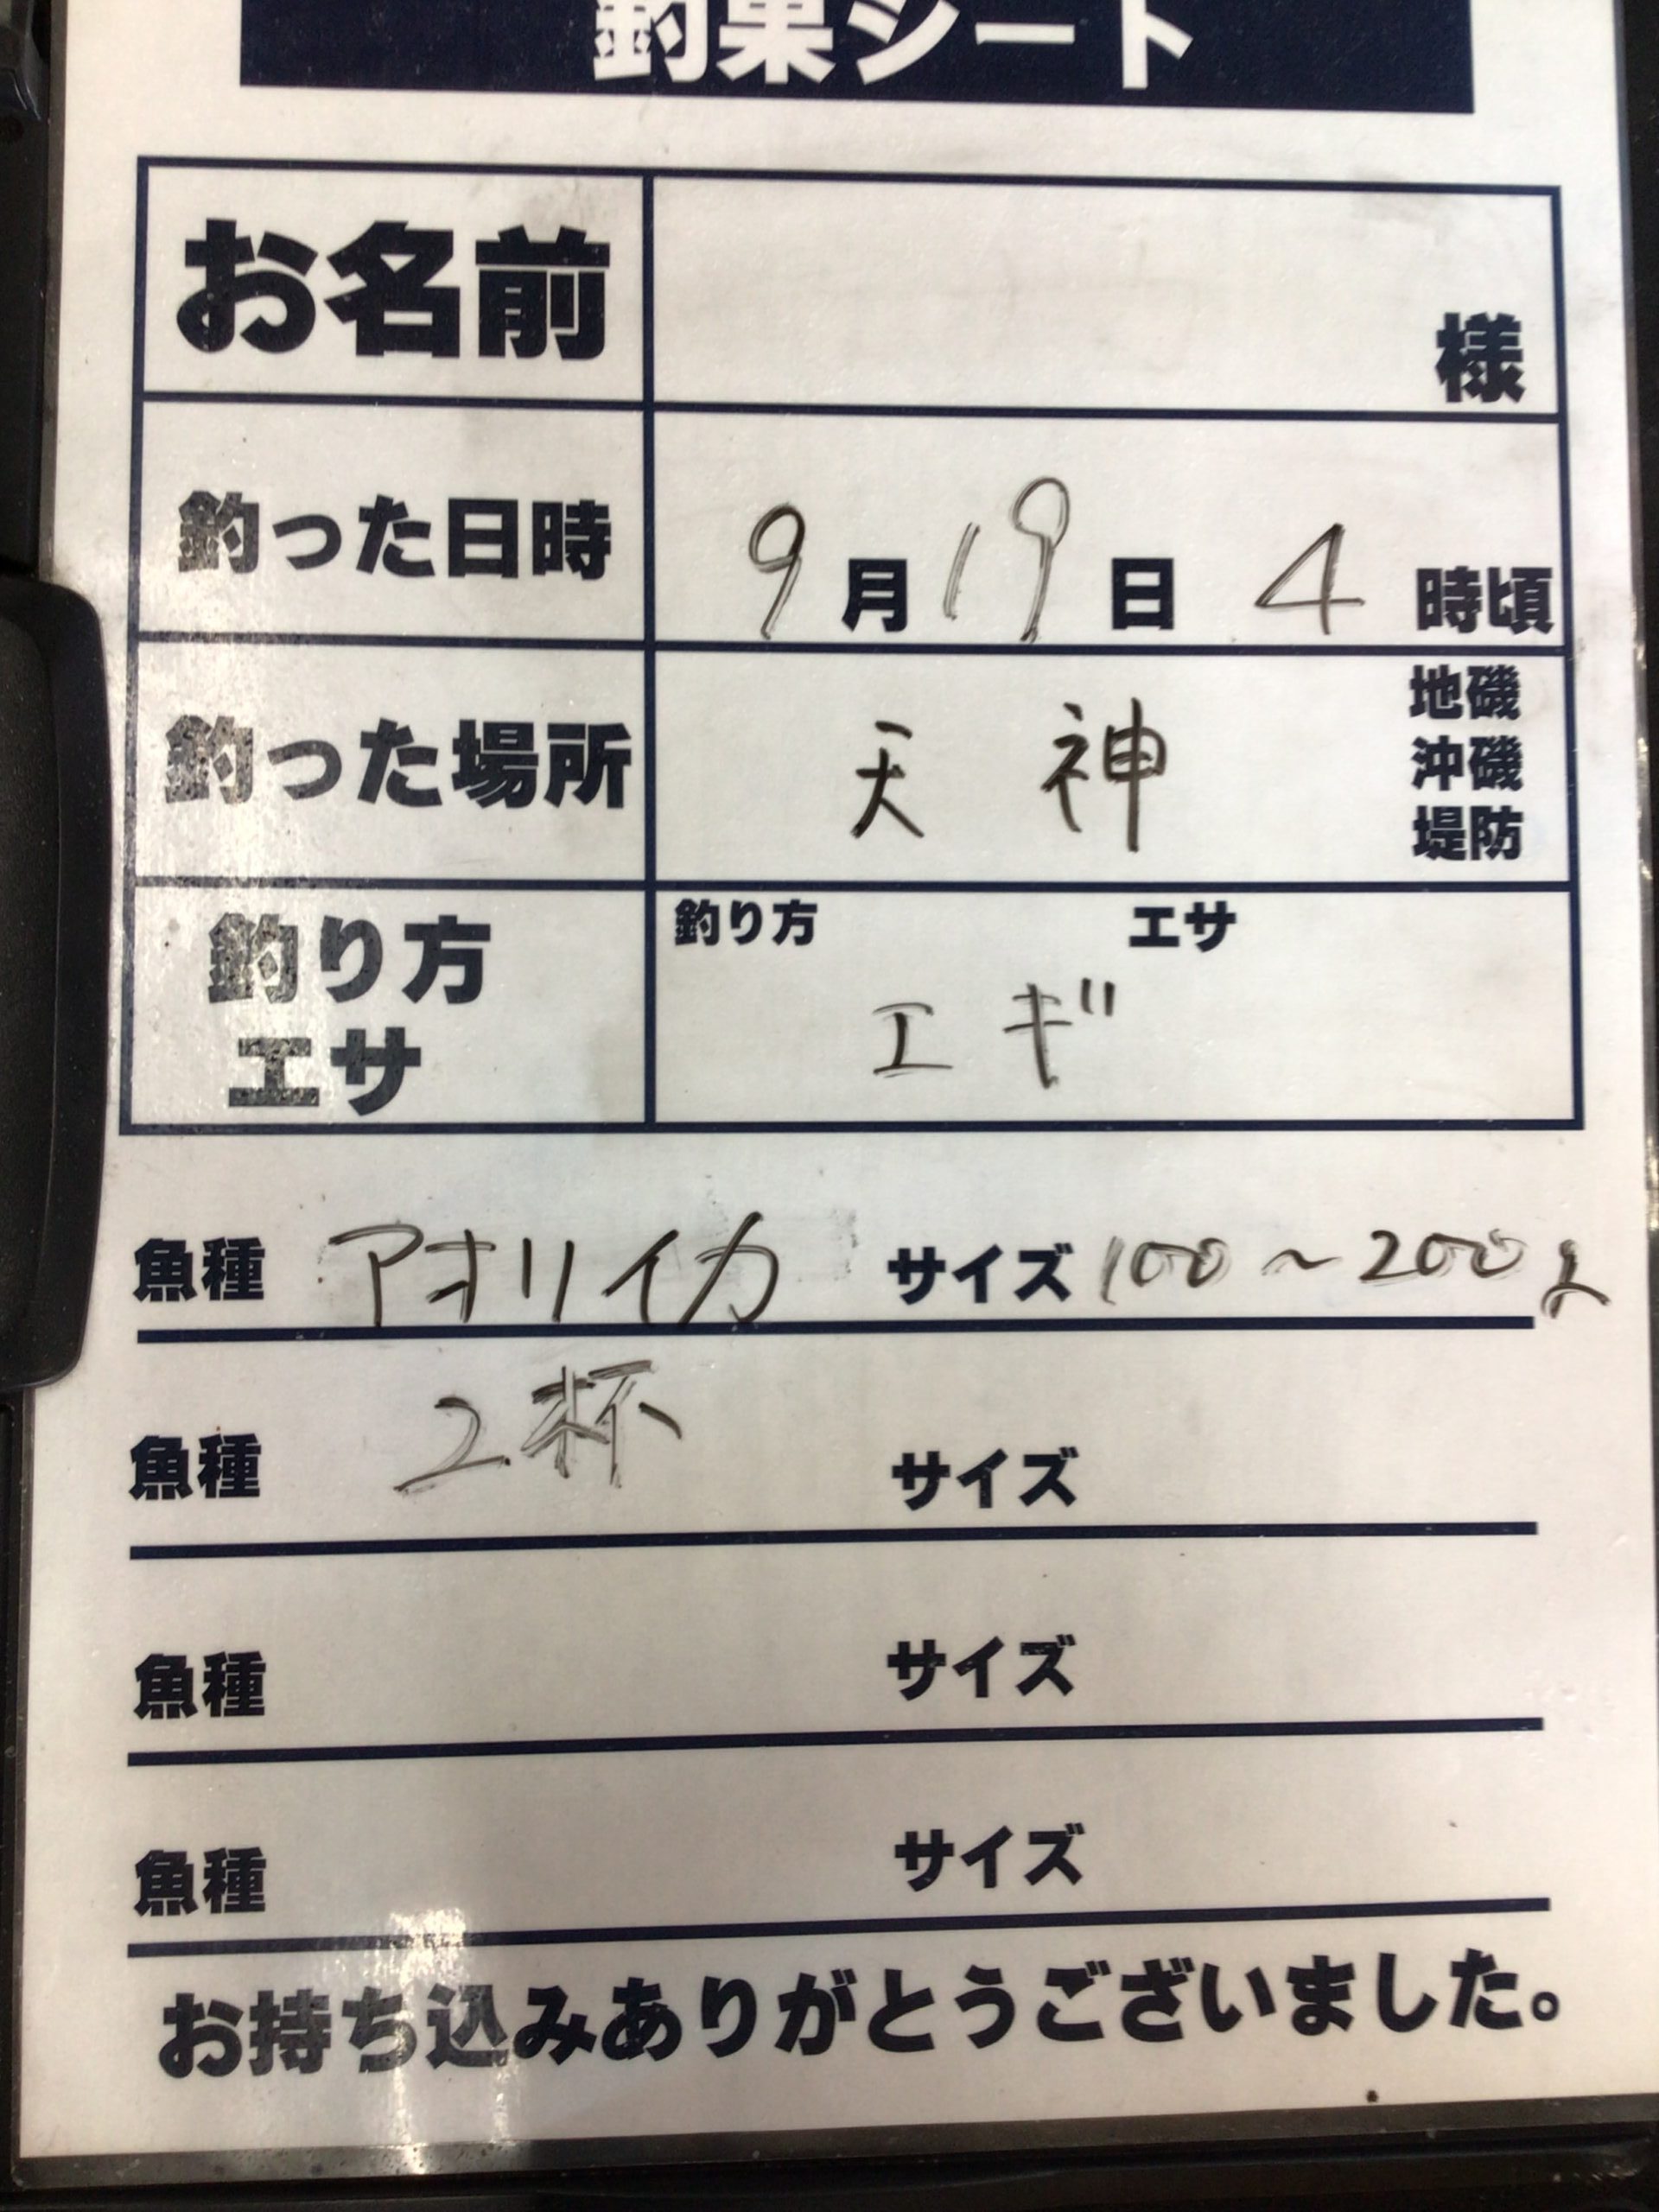 釣果シート
お名前 様
釣った日時 9月19日 4時頃
釣った場所 天神 地磯
沖磯
堤防
釣り方
エサ
釣り方 エサ
エギ
魚種 アオリイカ サイズ 100~200g
魚種 2杯 サイズ
魚種 サイズ
魚種 サイズ
お持ち込みありがとうございました。